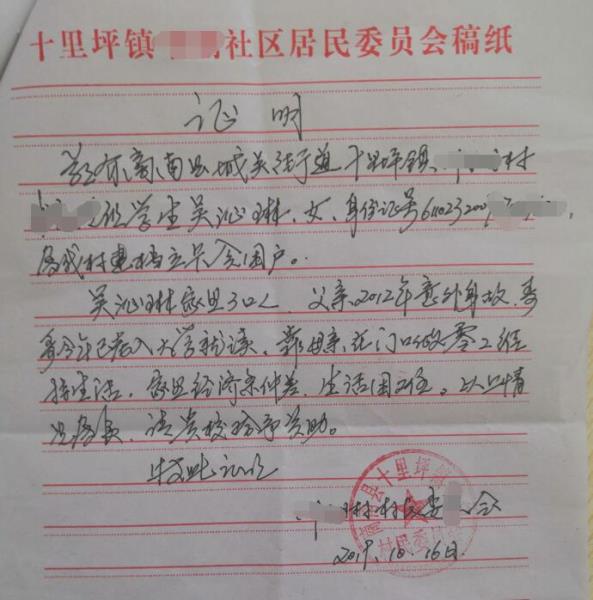 十里坪镇 社区居民委员会稿纸
证明
兹有商南县城关街道十里坪镇 村
组学生吴沁琳,女,身份证号611023200
属我村建档立卡贫困户。
吴沁琳家里3口人,父亲2012年意外身故,哥
哥今年已考入大学就读,靠母亲在门口做零工维
持生活,家里经济条件差,生活困难。以上情
况属实,请贵校给予资助。
特此证明
村村民委 会
2019.10.16日